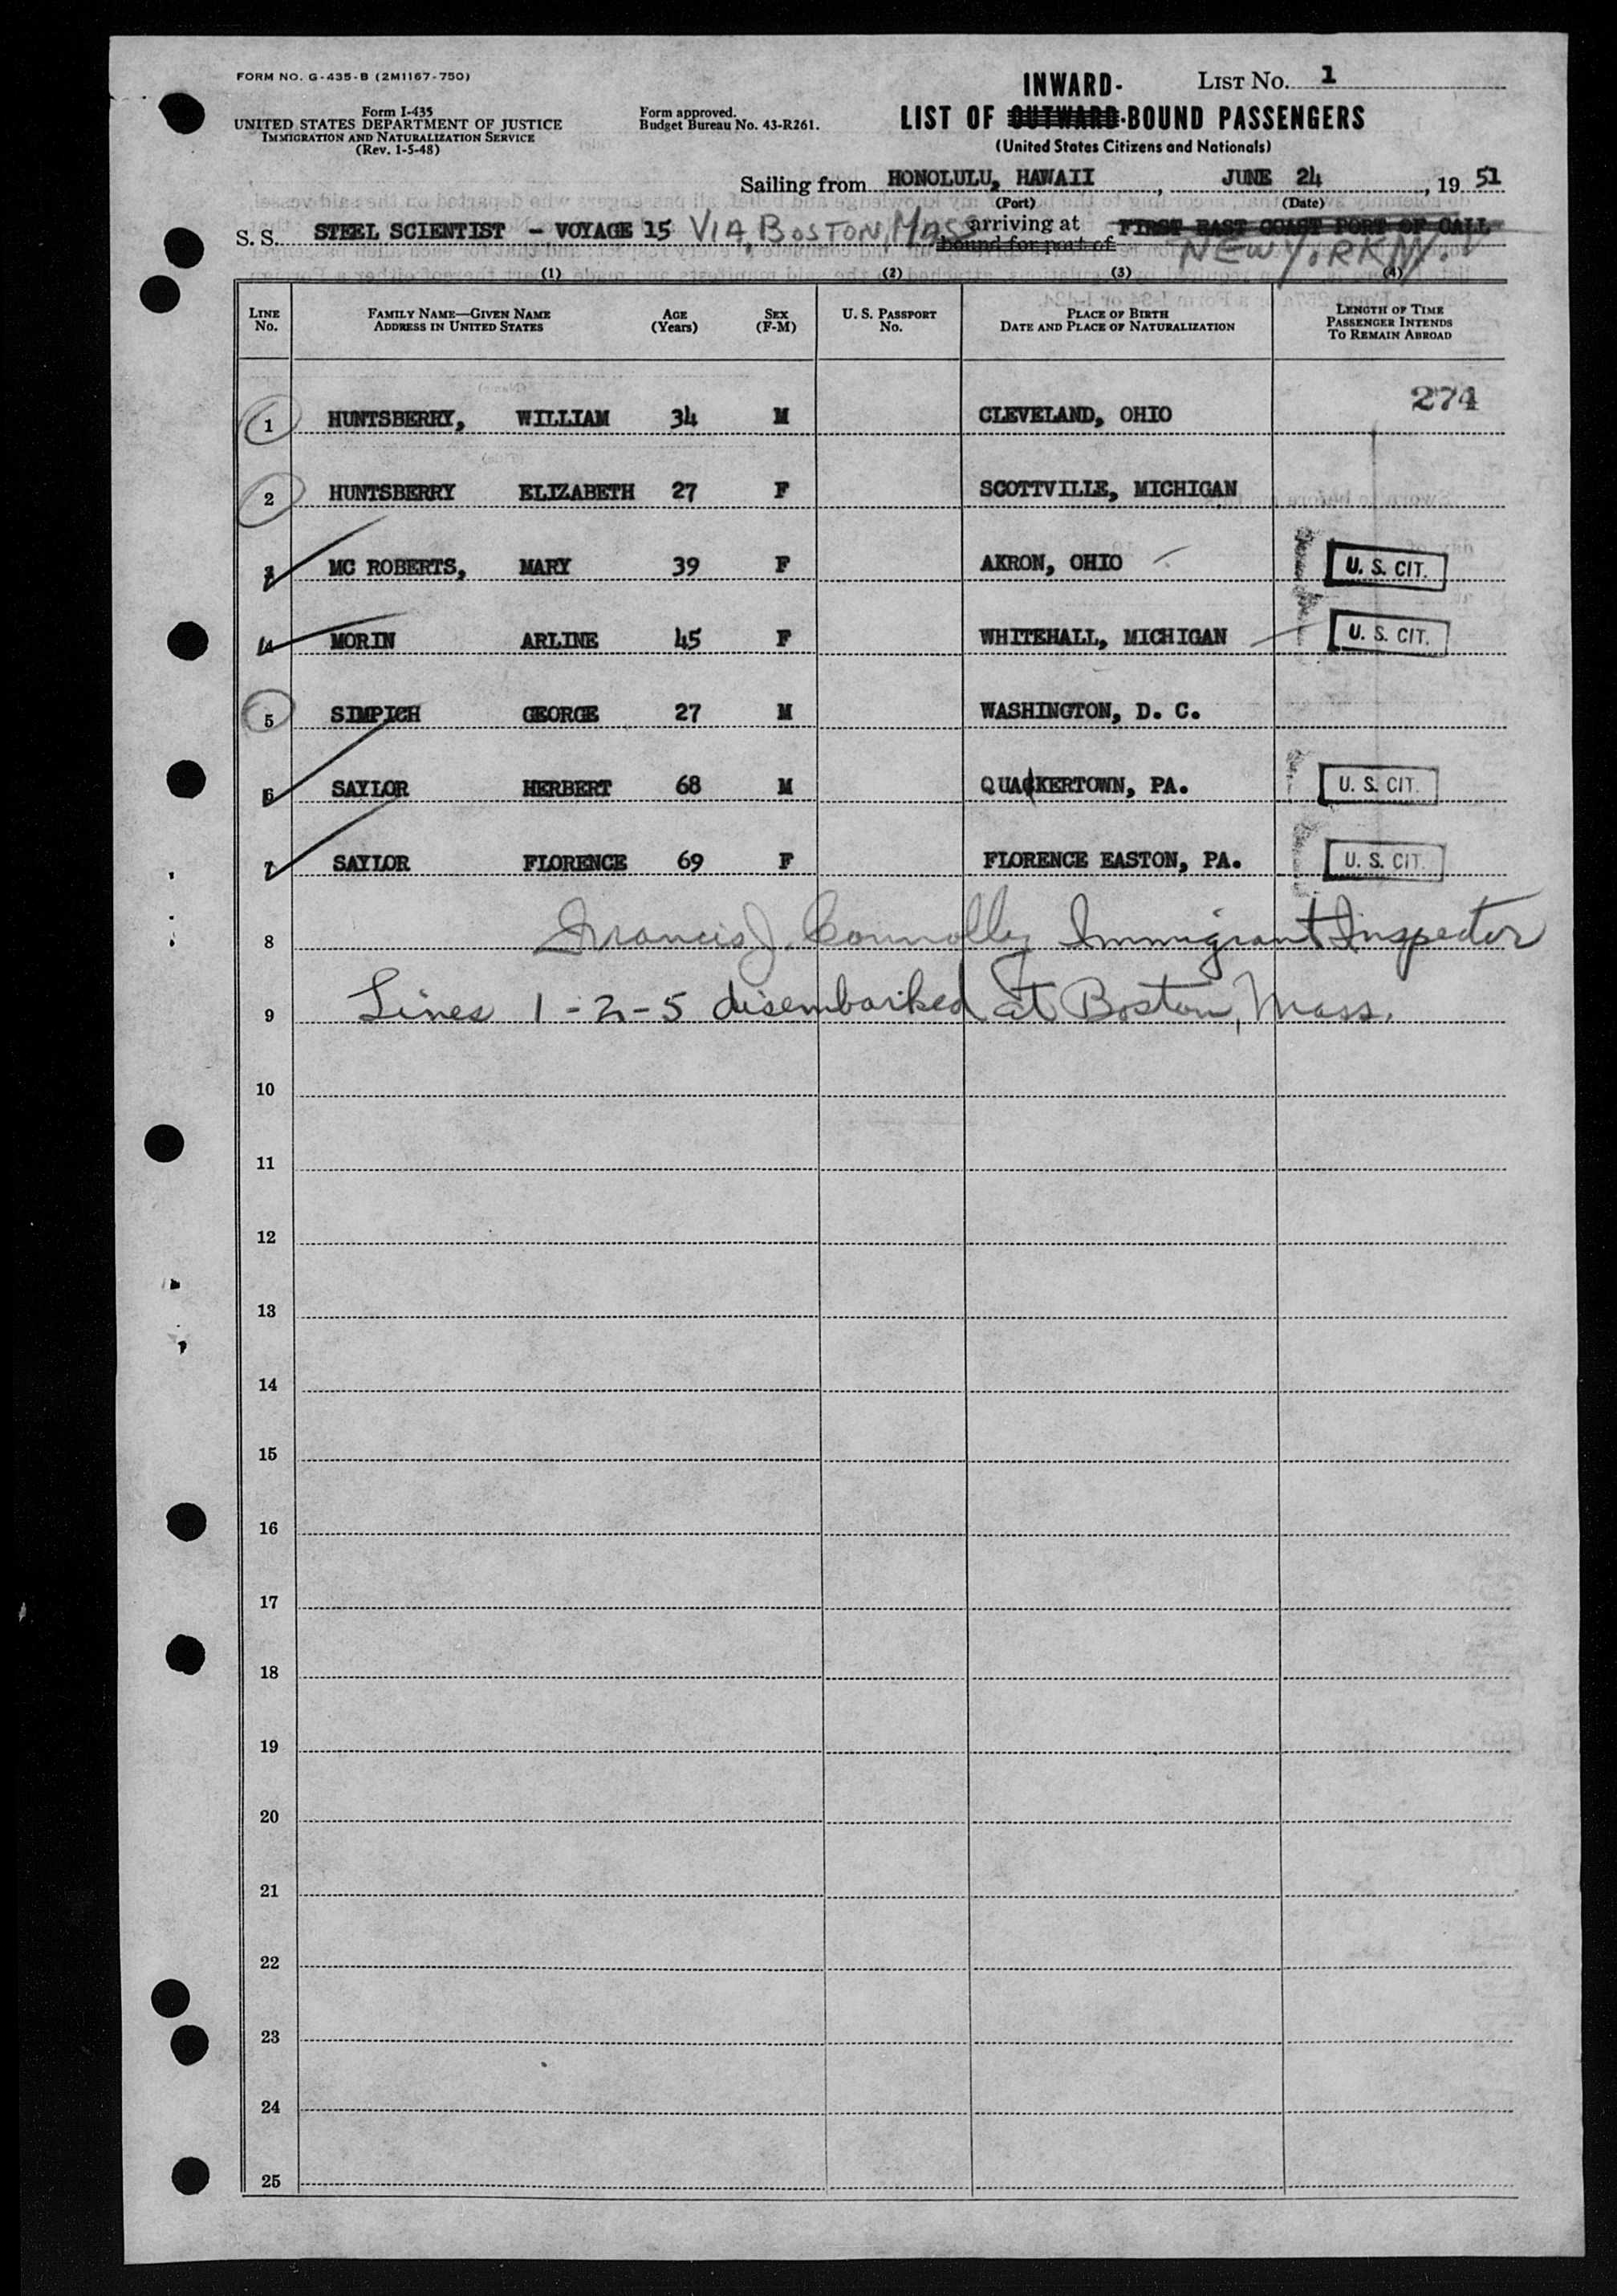 FORM NO. G-435-B (2M1167-750)
Form I-435
UNITED STATES DEPARTMENT OF JUSTICE
IMMIGRATION AND NATURALIZATION SERVICE
(Rev. 1-5-48)
Form approved.
Budget Bureau No. 43-R261.
LIST NO. 1
INWARD-
LIST OF OUTWARD-BOUND PASSENGERS
(United States Citizens and Nationals)
Sailing from HONOLULU, HAWAII, JUNE 24, 19 51
(Port) (Date)
S. S. STEEL SCIENTIST - VOYAGE 15 VIA, BOSTON, MASS arriving at FIRST EAST COAST PORT OF CALL
bound for port of NEW YORK N.Y
(1) (2) (3) (4)
LINE No. FAMILY NAME—GIVEN NAME ADDRESS IN UNITED STATES AGE (Years) SEX (F-M) U. S. PASSPORT No. PLACE OF BIRTH DATE AND PLACE OF NATURALIZATION LENGTH OF TIME PASSENGER INTENDS TO REMAIN ABROAD
274
1 HUNTSBERRY, WILLIAM 34 M CLEVELAND, OHIO
2 HUNTSBERRY ELIZABETH 27 F SCOTTVILLE, MICHIGAN
3 MC ROBERTS, MARY 39 F AKRON, OHIO U. S. CIT.
4 MORIN ARLINE 45 F WHITEHALL, MICHIGAN U. S. CIT.
5 SIMPICH GEORGE 27 M WASHINGTON, D. C.
6 SAYLOR HERBERT 68 M QUACKERTOWN, PA. U. S. CIT.
7 SAYLOR FLORENCE 69 F FLORENCE EASTON, PA. U. S. CIT.
8 Francis J. Connolly Immigrant Inspector
9 Lines 1-2-5 disembarked at Boston, Mass.
10
11
12
13
14
15
16
17
18
19
20
21
22
23
24
25